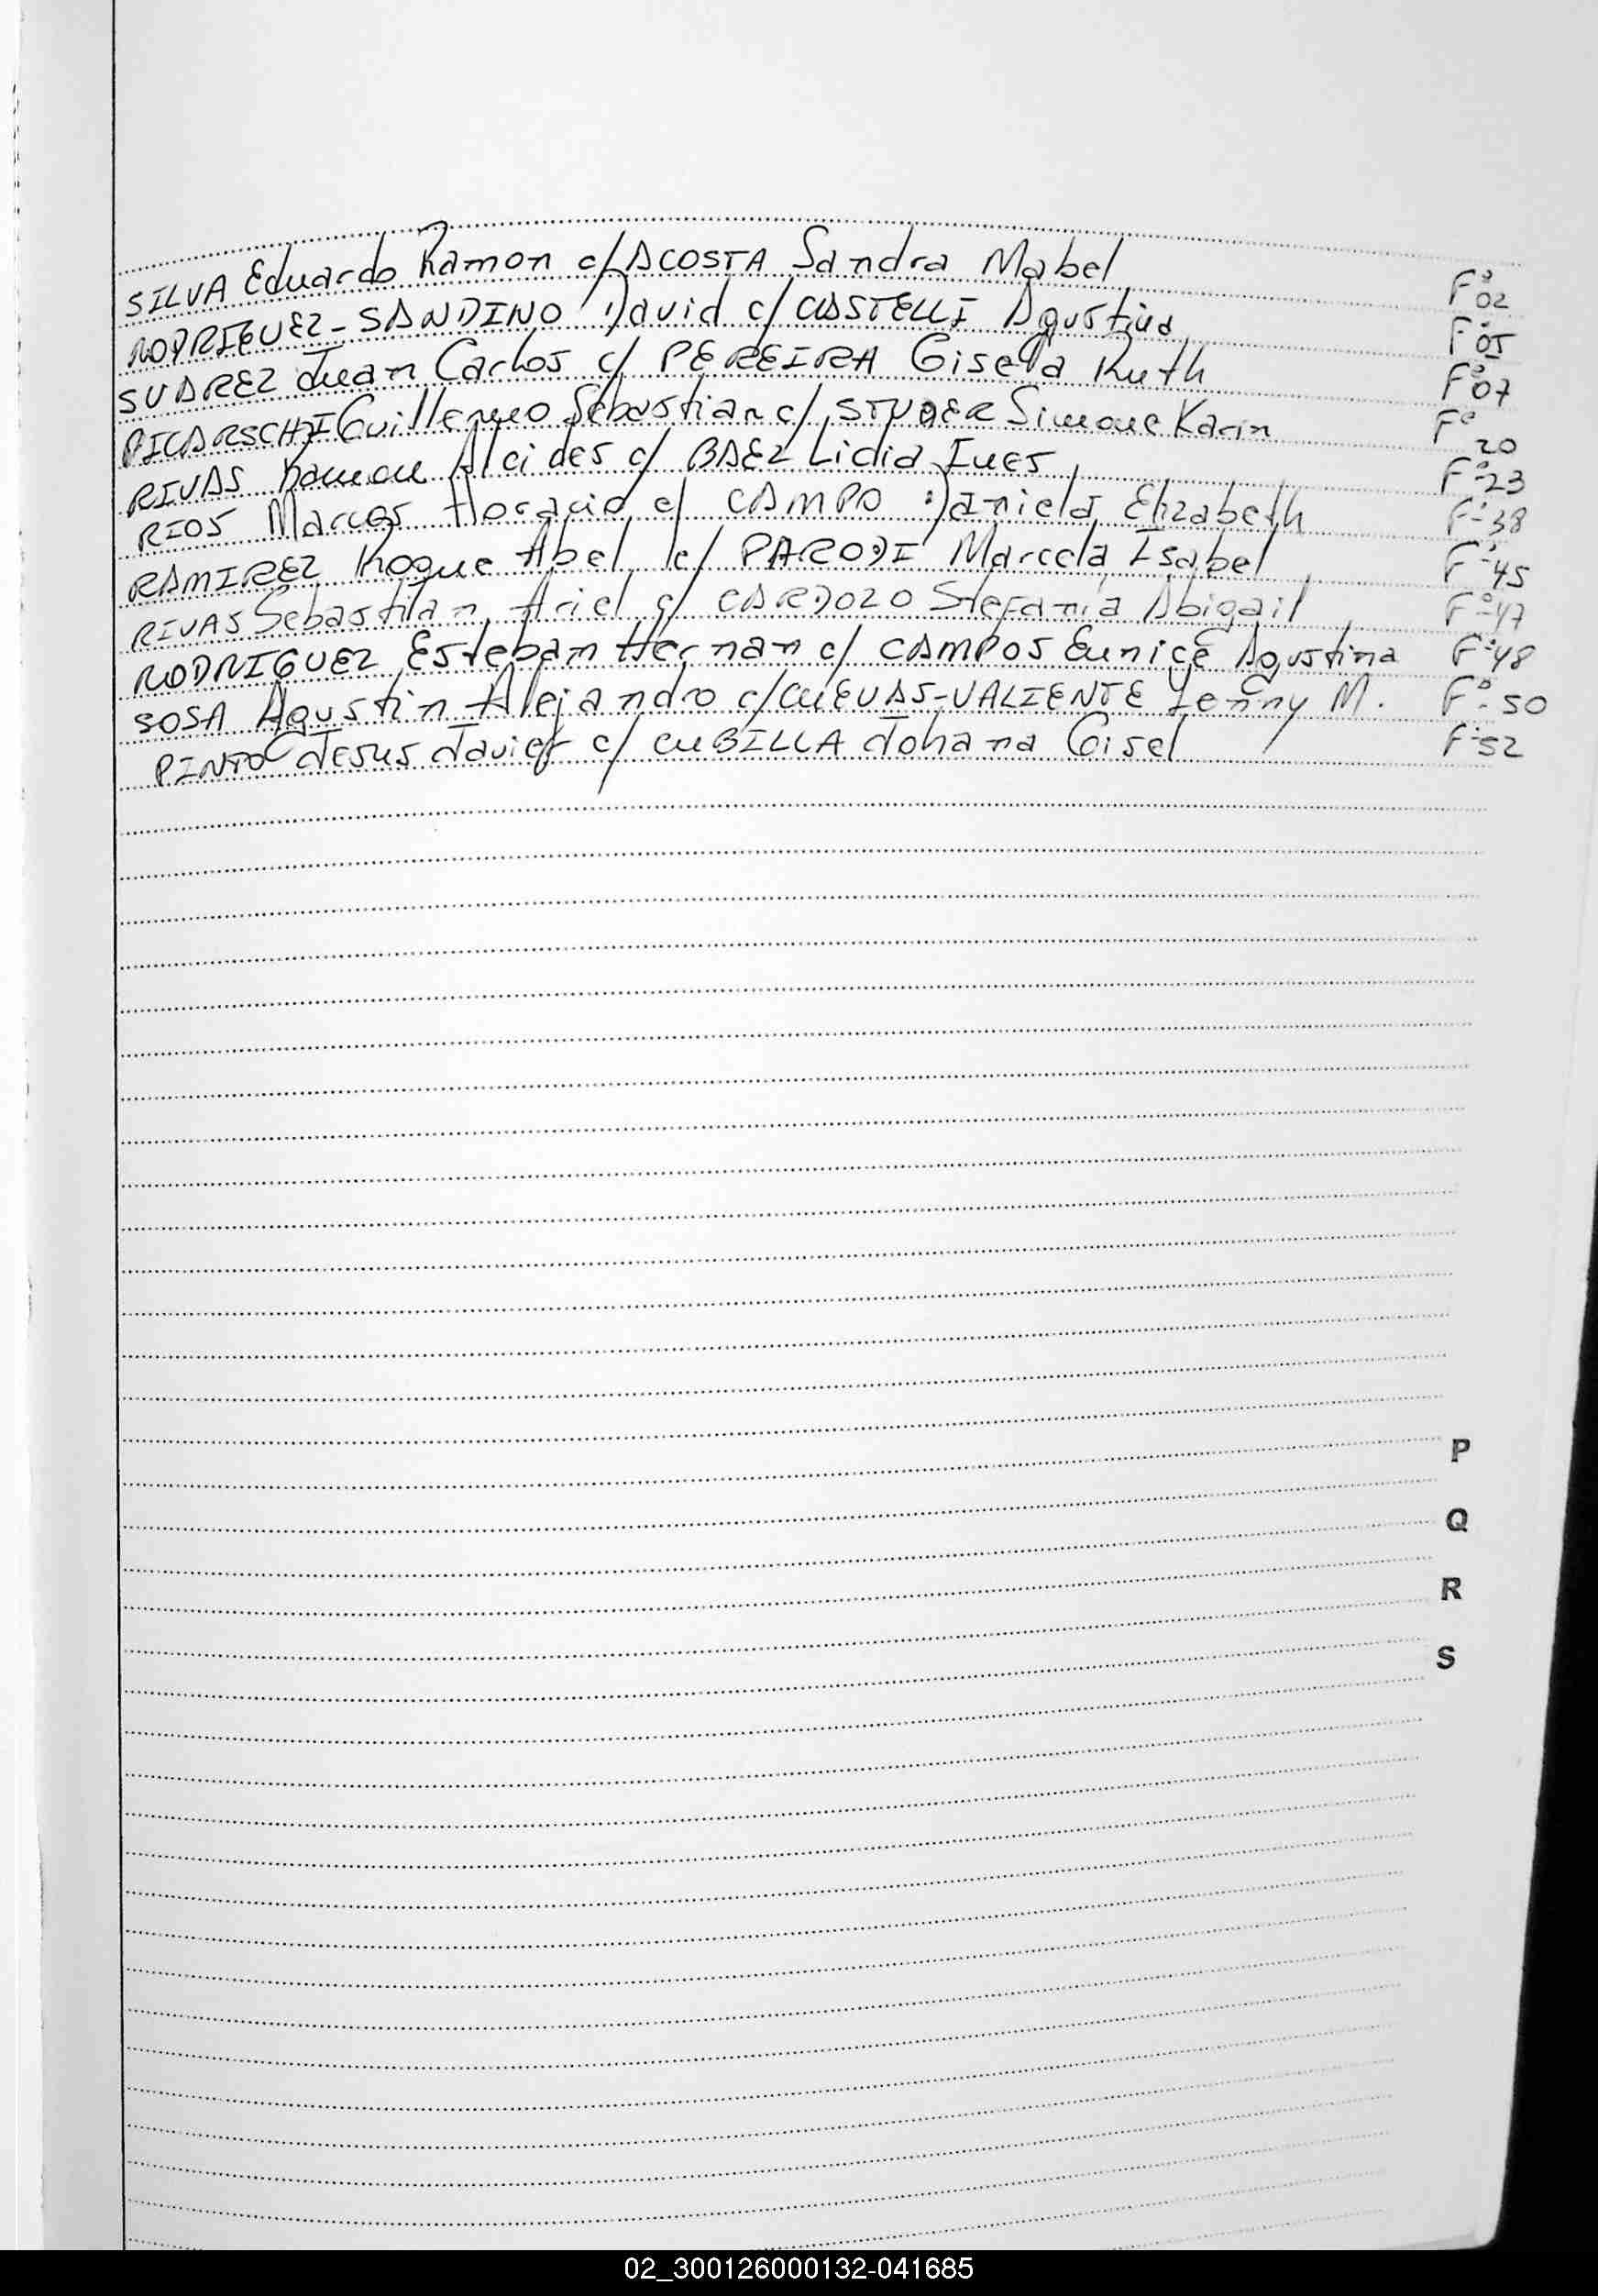 SILVA Eduardo Ramon c/ ACOSTA Sandra Mabel F° 02
RODRIGUEZ-SANDINO David c/ CASTELLI Agustina F° 05
SUAREZ Juan Carlos c/ PEREIRA Gisela Ruth F° 07
PICARSCHI Guillermo Sebastian c/ STUDER Simone Karin F° 20
RIVAS Ramon Alcides c/ BAEZ Lidia Ines F° 23
RIOS Marcos Horacio c/ CAMPO Daniela Elizabeth F° 38
RAMIREZ Roque Abel c/ PARODI Marcela Isabel F° 45
RIVAS Sebastian Ariel c/ CARDOZO Stefania Abigail F° 47
RODRIGUEZ Esteban Hernan c/ CAMPOS Eunice Agustina F° 48
SOSA Agustin Alejandro c/ CUEVAS-VALIENTE Yenny M. F° 50
PINTO Jesus Javier c/ CUBILLA Johana Gisel F° 52
P
Q
R
S
02_300126000132-041685